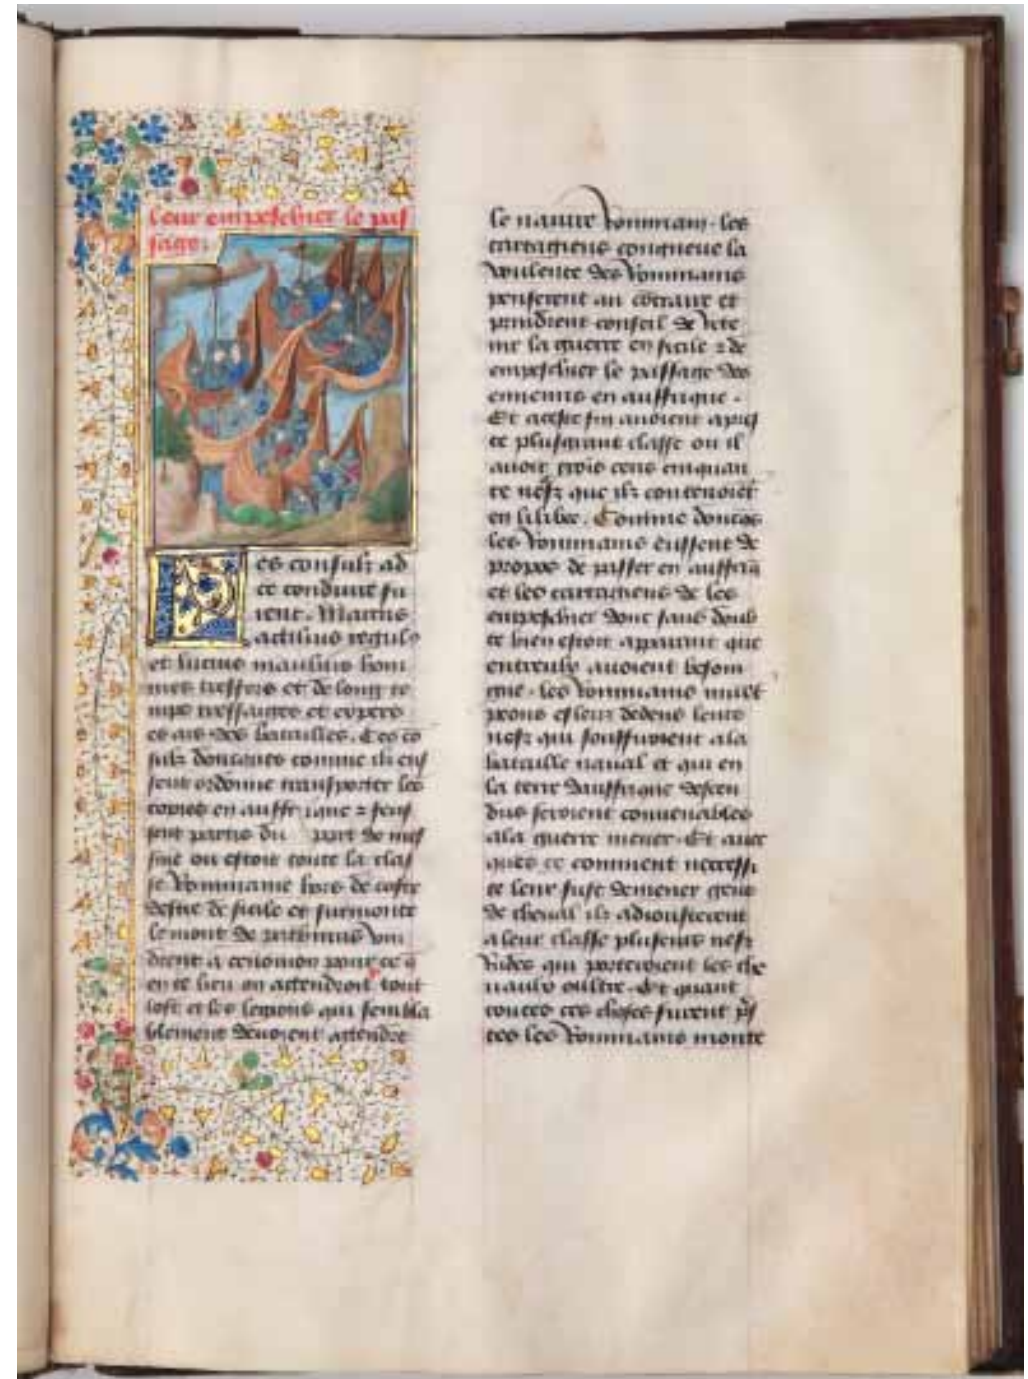 leur empeschier le pas
sage.
Les consulz ad
ce conduire fu
rent. Marcus
actilius regul9
et lucius manlius hom
mes tresfors et de long te
mps tressaiges et expers
es ars des batailles. Ces co
sulz doncques comme ilz eus
sent ordonne transporter les
copies en auffrique z feus
sent partis du port de mes
sine ou estoit toute la clas
se Rommaine hors de coste
destre de sicile et surmonte
le mont de pathinus vin
drent a cenomon pour ce q
en ce lieu on attendroit tout
lost et les legions qui sembla
blement devoient attendre
le navire Rommain. les
cartagiens congneue la
voulente des Rommains
penserent au cotraire et
prindrent conseil de rete
nir la guerre en sicile z de
empeschier le passage des
ennemis en auffrique.
Et a ceste fin avoient apres
te plusgrant classe ou il
avoit trois cens cinquan
te nefz que ilz contenoiet
en lilibee. Comme doncqs
les Rommains eussent de
propos de passer en auffriq
et les cartagiens de les
empeschier dont sans doub
te bien estoit apparant que
entreulx avoient besoin
gne. les Rommains
dedens leurs
nefz qui souffiroient a la
bataille naval et qui en
la terre dauffrique descen
dus seroient convenables
a la guerre mener. Et avec
ques ce comment necessi
te leur fust demener gens
de cheval ilz adiousterent
a leur classe plusieurs nefz
vides qui porteroient les che
vaulx oultre. Et quant
toutes ces choses furent ps
tes les Rommains monte